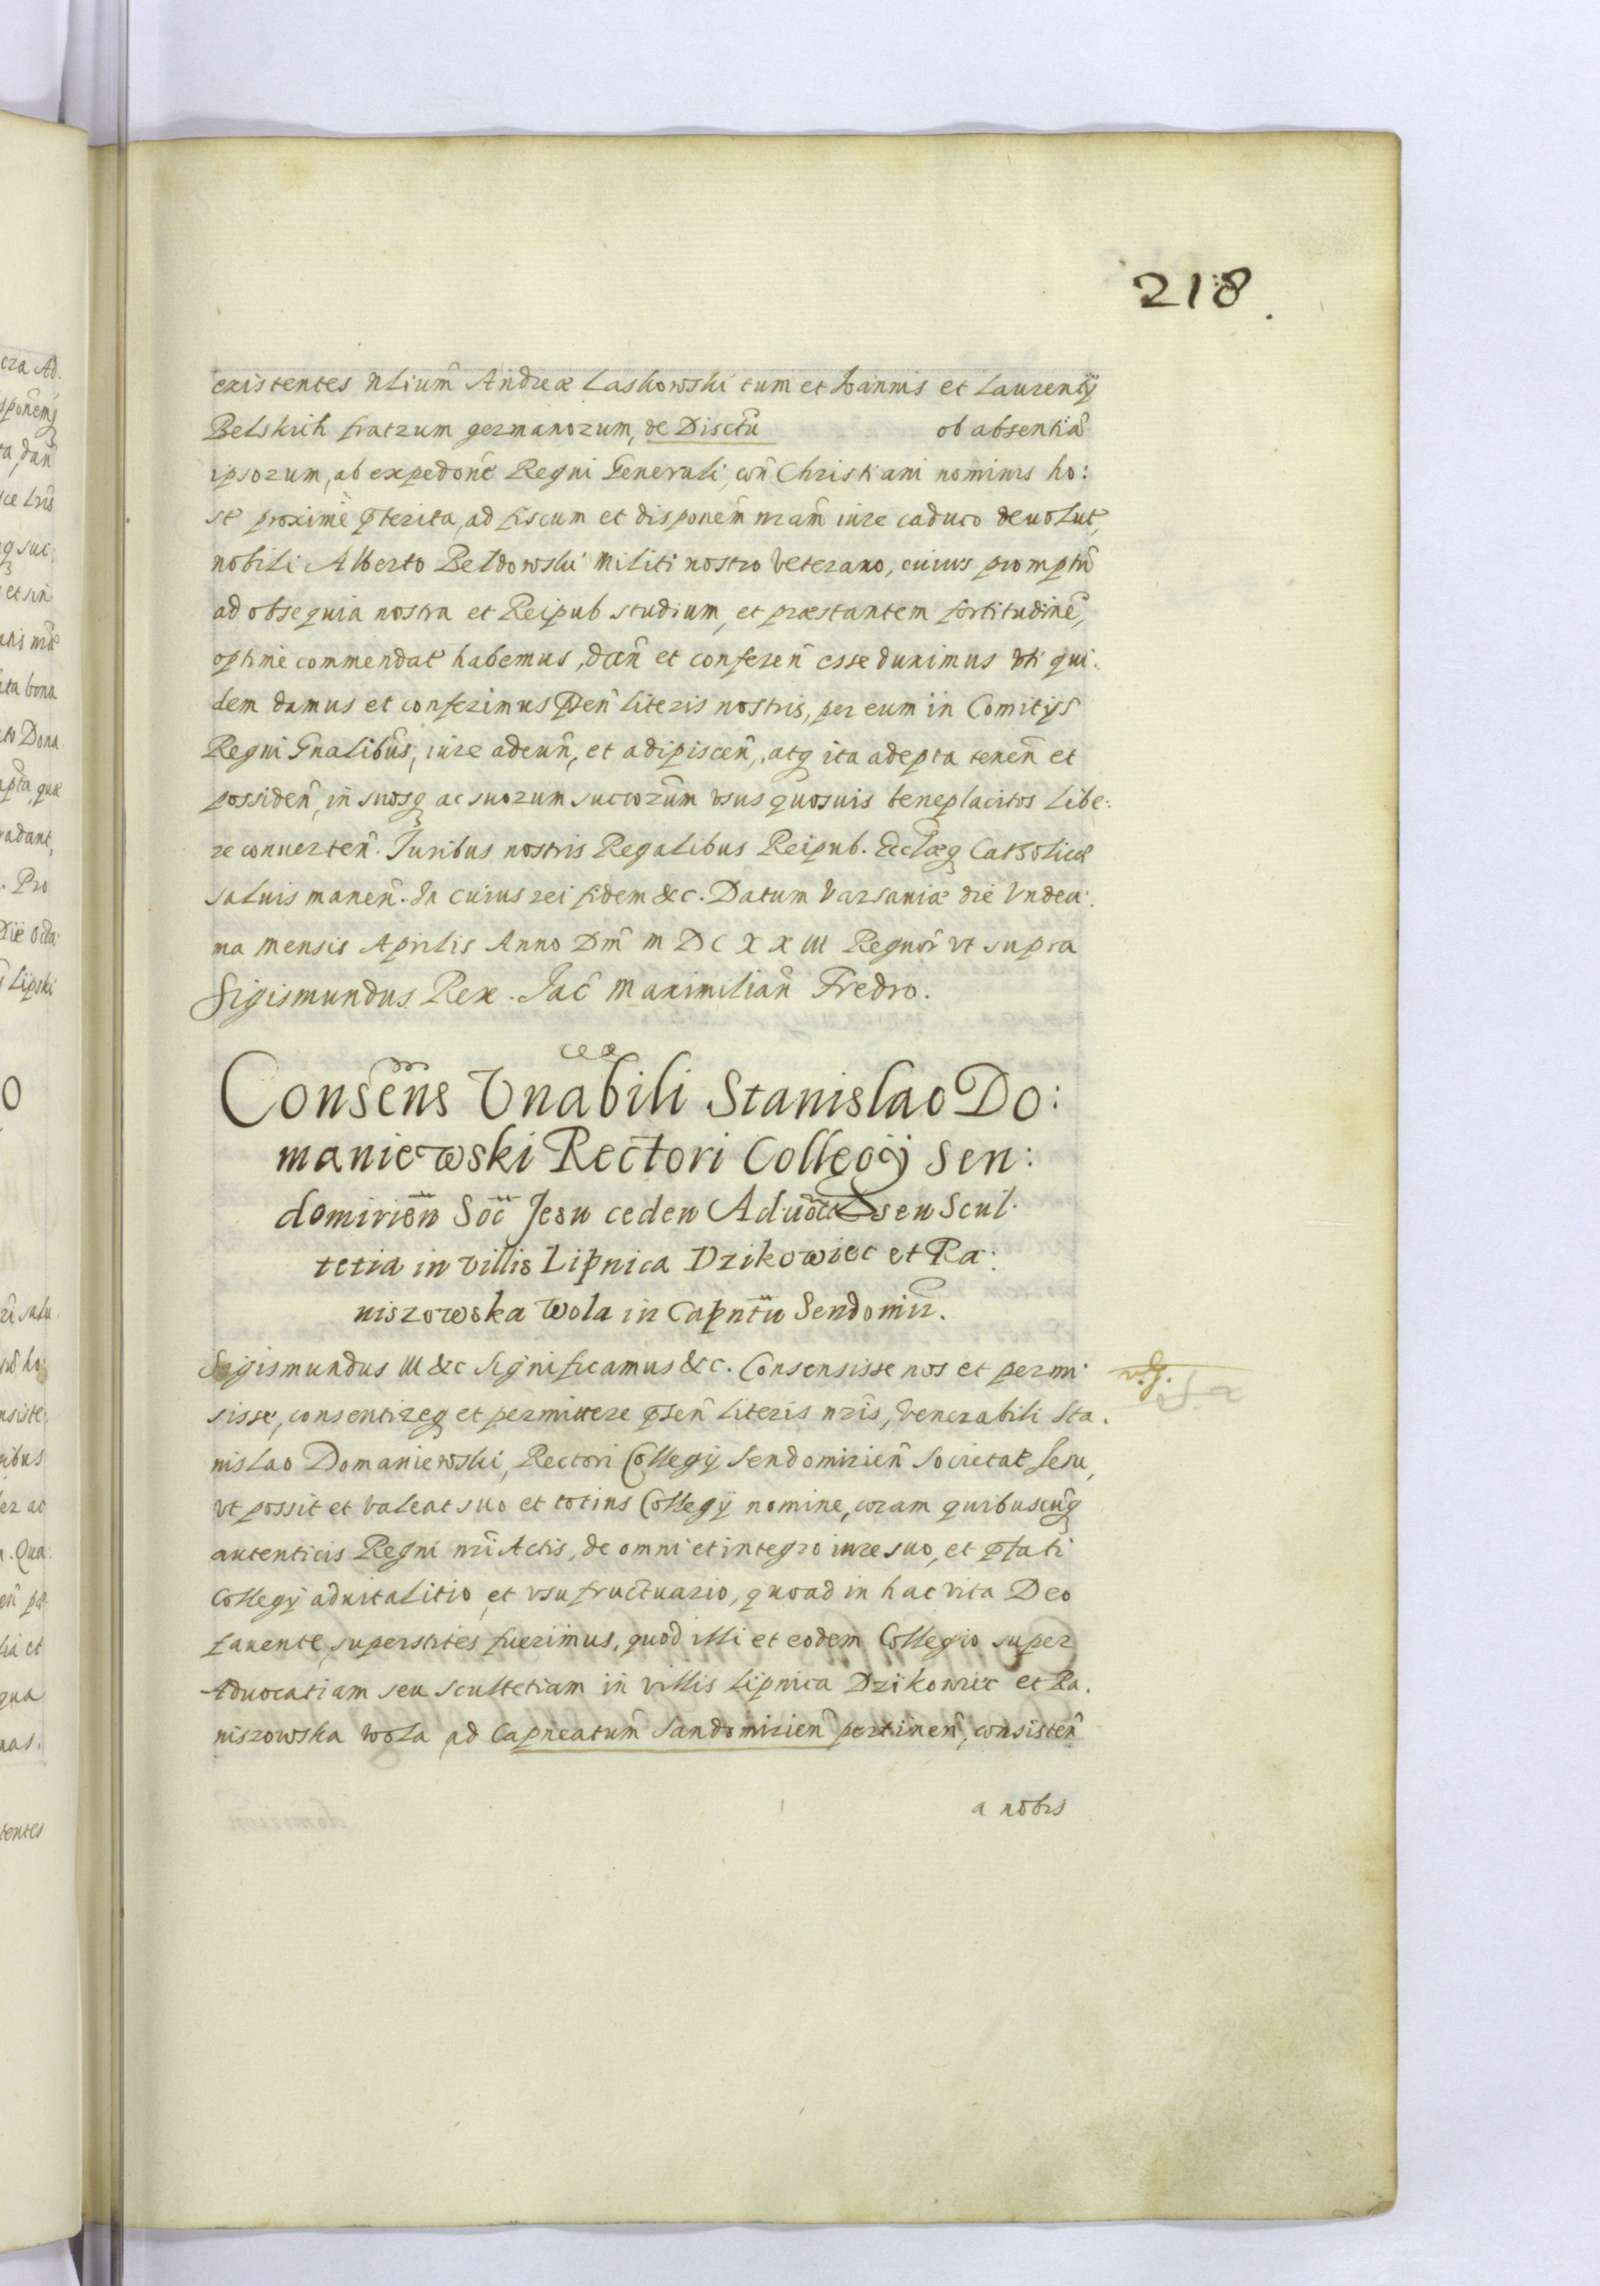 218.
existentes Nliũm Andreæ Laskowski tum et Ioannis et Laurentÿ
Belskich fratrum germanorum, de Disctũ ob absentiã
ipsorum, ab expedõne Regni Generali, con̄ Christiani nominis ho:
ste proximè p̱terita, ad fiscum et disponem̄ nram̄ iure caduco deuolut,
nobili Alberto Beldowski Militi nostro Veterano, cuius promptũ
ad obsequia nostra et Reipub studium, et præstantem fortitudinẽ,
optimè commendat habemus, dan̄ et conferen̄ esse duximus vti qui:
dem damus et conferimus p̱n̄ literis nostris, per eum in Comitÿs
Regni Gn̄alibus, iure adeun̄, et adipiscen̄, atq̨ ita adepta tenen̄ et
possiden̄, in suosq̨ ac suorum succorũm vsus quosuis beneplacitos libe:
re conuerten̄. Iuribus nostris Regalibus Reipub. Ecclæq̨ Catholicæ
saluis manen̄. In cuius rei fidem &c. Datum Varsauiæ die Vndeci:
ma Mensis Aprilis Anno Dm̄ M D C X X III Regnor̄ vt supra
Sigismundus Rex. Iac̄ Maximilian̄ Fredro.
Consen̄s Vnābili Stanislao Do:
maniewski Rectori Collegÿ Sen:
domirien̄ Soc̄ Jesu ceden Aduoc̄ seu Scul:
tetia in villis Lipnica Dzikowiec et Ra:
niszowska Wola in Capn̄tu Sendomir̄.
Sigismundus III &c Significamus &c. Consensisse nos et permi
sisse, consentireq̨ et permittere p̱sen̄ literis nr̄is, Venerabili Sta:
nislao Domaniewski, Rectori Collegÿ Sendomirien̄ Societat Iesu,
vt possit et valeat suo et totius Collegÿ nomine, coram quibuscũq̨
autenticis Regni nr̄i Actis, de omni et integro iure suo, et p̱fati
Collegÿ aduitalitio, et vsufructuario, quoad in hac vita Deo
fauente, superstites fuerimus, quod illi et eodem Collegio super
Aduocatiam seu scultetiam in villis Lipnica Dzikowiec et Ra:
niszowska Wola, ad Capneatum̄ Sandomirien̄ pertinen̄, consisten̄
a nobis